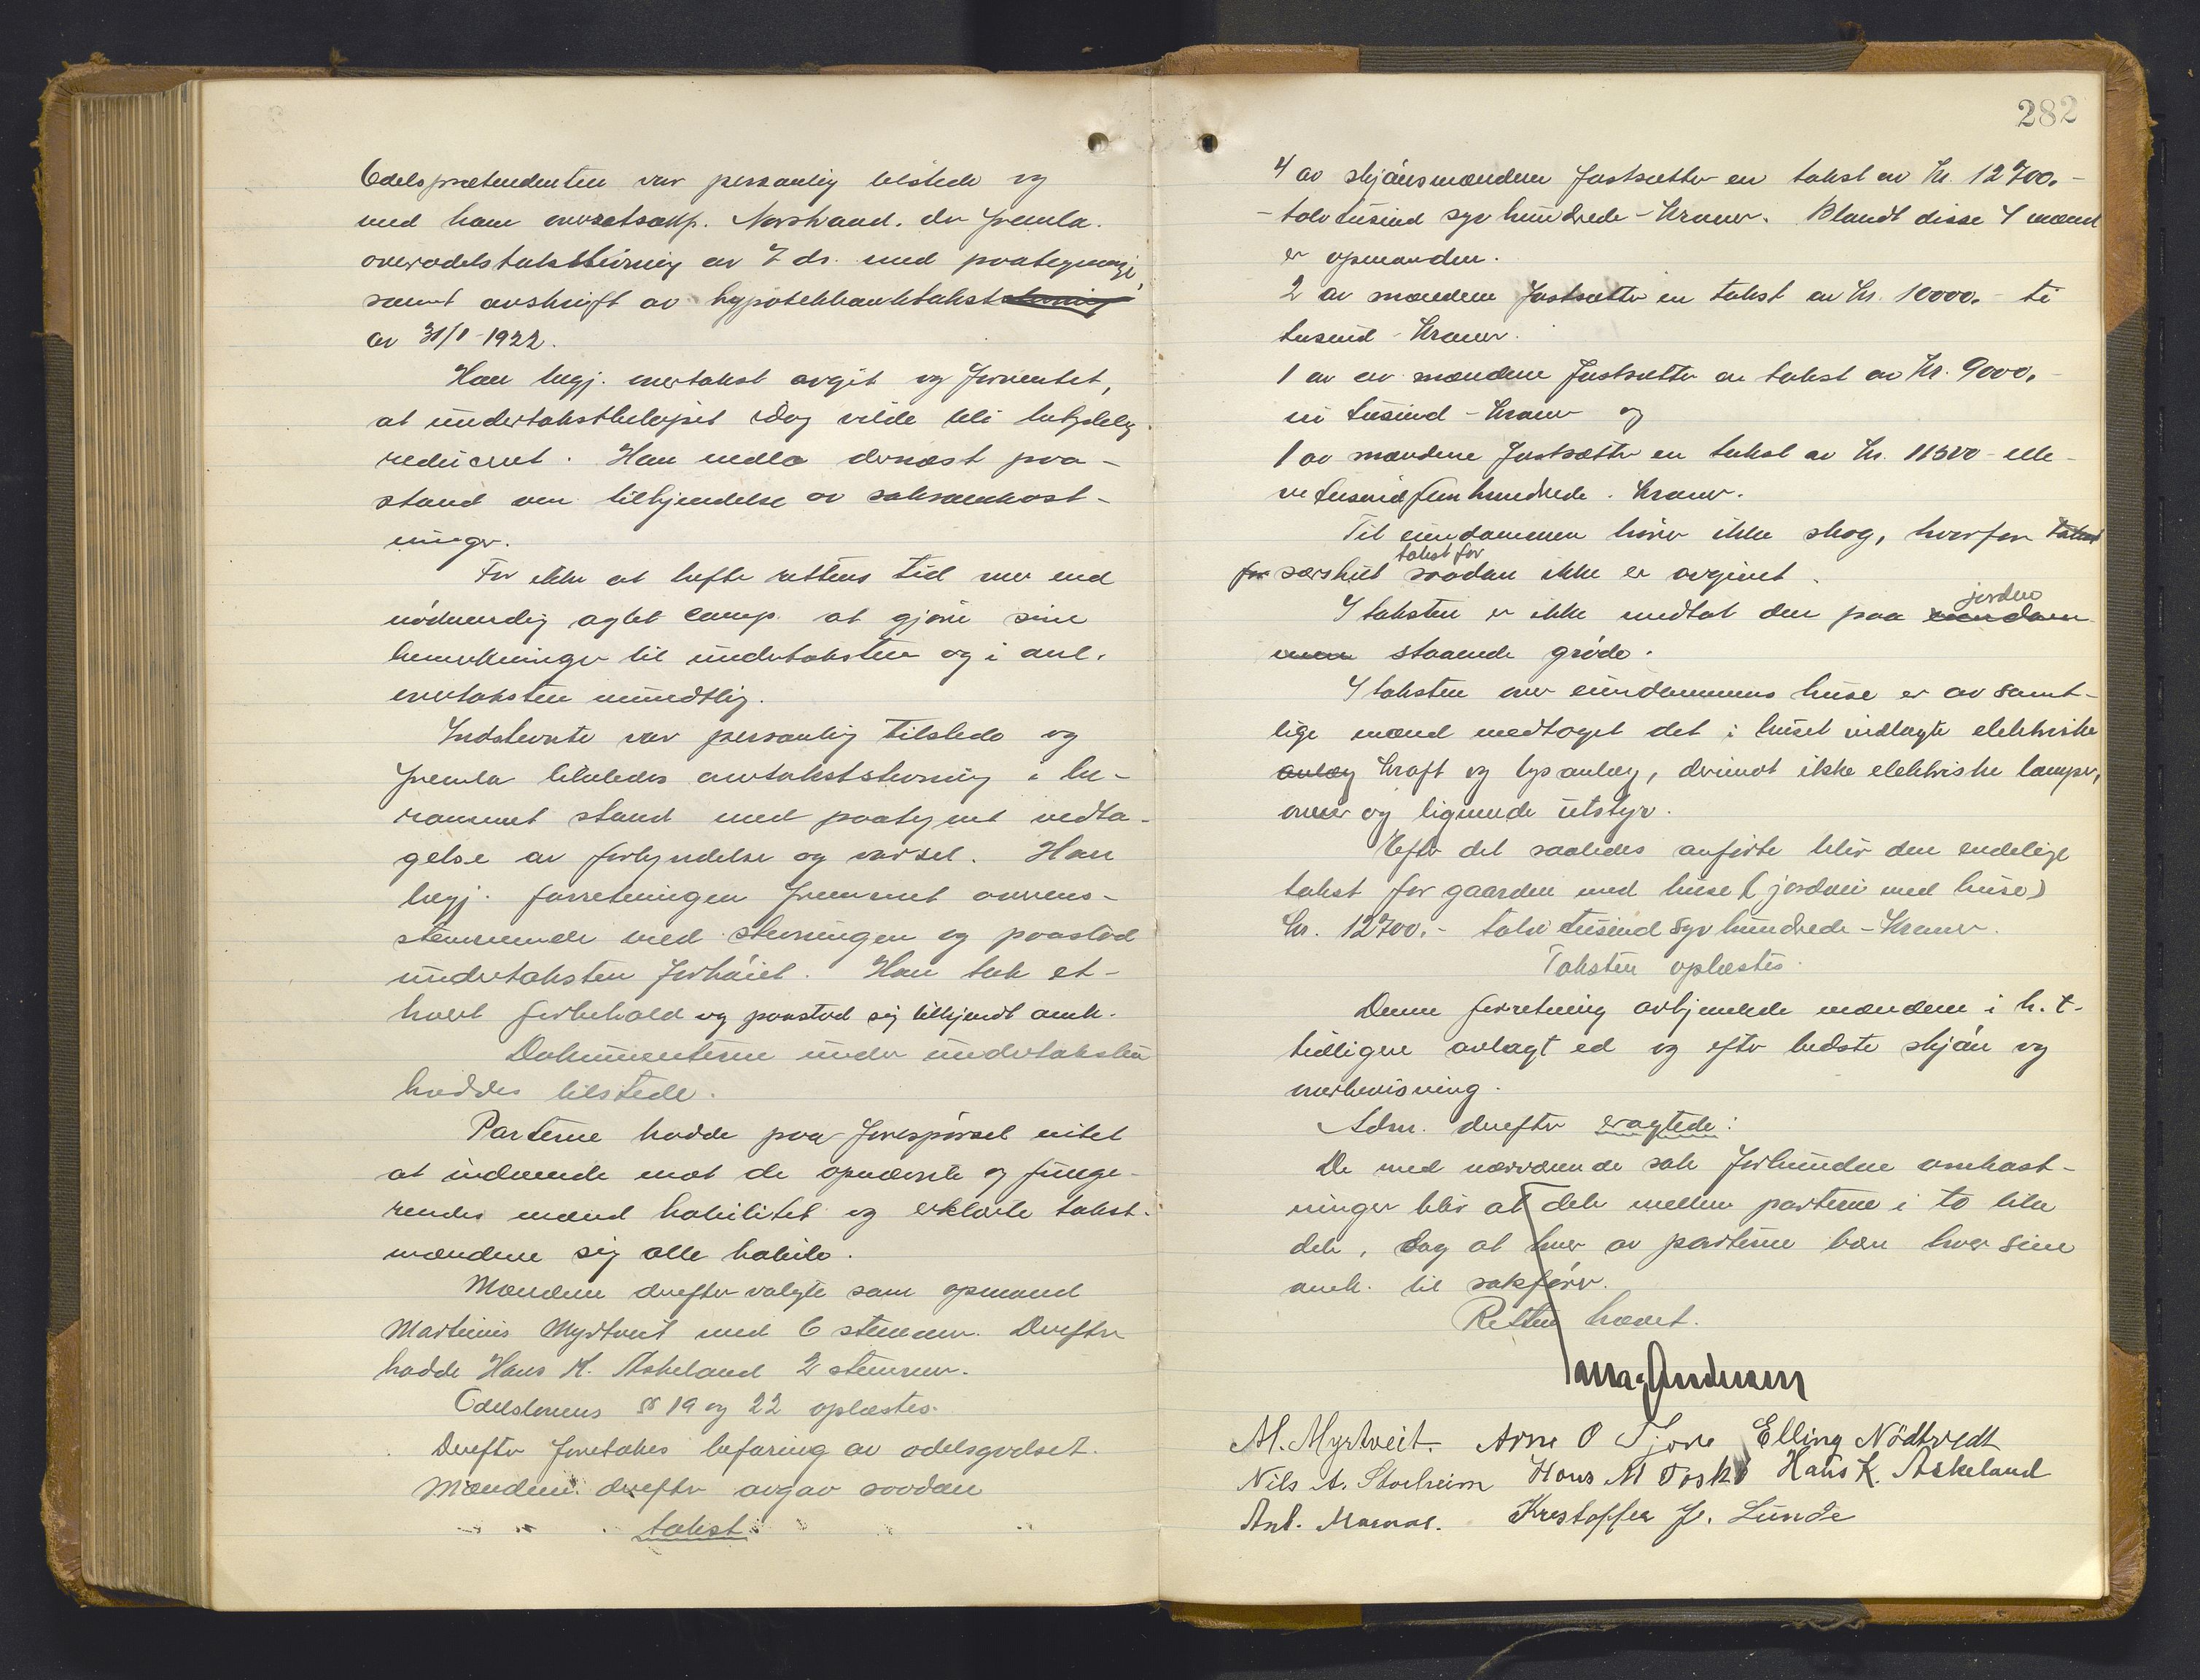 Odelsprætendenten var personlig tilstede og
med ham overretssakf. Norstrand. der fremla.
overodelstakststevning av 7 ds. med paategning,
samt avskrift av hypotekbanktakststevning
av 31/1-1922.
Han begj. overtakst avgit og forventet,
at undertakstbeløpet idag vilde bli betydelig
reduceret. Han nedla dernæst paa-
stand om tilkjendelse av saksomkost-
ninger.
For ikke at hefte rettens tid mer end
nødvendig agtet comp. at gjøre sine
bemerkninger til undertaksten og i anl.
overtaksten mundtlig.
Indstevnte var personlig tilstede og
fremla likeledes overtakststevning i be-
rammet stand med paategnet vedta-
gelse av forkyndelse og varsel. Han
begj. forretningen fremmet overens-
stemmende med stevningen og paastod
undertaksten forhøiet. Han tok et-
hvert forbehold og paastod sig tilkjendt omk.
Dokumenterne under undertaksten
haddes tilstede.
Parterne hadde paa forespørsel intet
at indvende mot de opnævnte og funge-
rende mænds habilitet og erklærte takst-
mændene sig alle habile.
Mændene derefter valgte som opmand
Martinus Myrtveit med 6 stemmer. Derefter
hadde Hans K. Askeland 2 stemmer.
Odelslovens §§ 19 og 22 oplæstes.
Derefter foretokes befaring av odelsgodset.
Mændene derefter avgav saadan
takst:
282
4 av skjønsmændene fastsætter en takst av Kr. 12700.-
- tolv tusind syv hundrede - Kroner. Blandt disse 4 mænd
er opmanden.
2 av mændene fastsætter en takst av Kr. 10000.- ti
tusind - Kroner.
1 av av mændene fastsætter en takst av Kr. 9000.-
ni tusind - Kroner og
1 av mændene fastsætter en takst av Kr. 11500 - elle-
ve tusind femhundrede. Kroner.
Til eiendommen hører ikke skog, hvorfor takst
takst for
for særskilt saadan ikke er avgivet.
jorden
I taksten er ikke medtat den paa eiendom-
men staaende grøde.
I taksten over eiendommens huse er av samt-
lige mænd medtaget det i huset indlagte elektriske
anlæg kraft og lysanlæg, derimot ikke elektriske lamper,
ovner og lignende utstyr.
Efter det saaledes anførte blir den endelige
takst for gaarden med huse (jorden med huse)
Kr. 12700.- tolv tusind syv hundrede - Kroner.
Taksten oplæstes.
Denne forretning avhjemlede mændene i h. t.
tidligere avlagt ed og efter bedste skjøn og
overbevisning.
Adm. derefter eragtede:
De med nærværende sak forbundne omkost-
ninger blir at dele mellem parterne i to like
dele, dog at hver av parterne bær hver sine
omk. til sakfører.
Retten hævet.
Andersen
M. Myrtveit. Arne O Tjore Elling Nødtvedt
Nils A. Storheim Hans M Toske Hans K. Askeland
Ant. Kristoffer J. Lunde